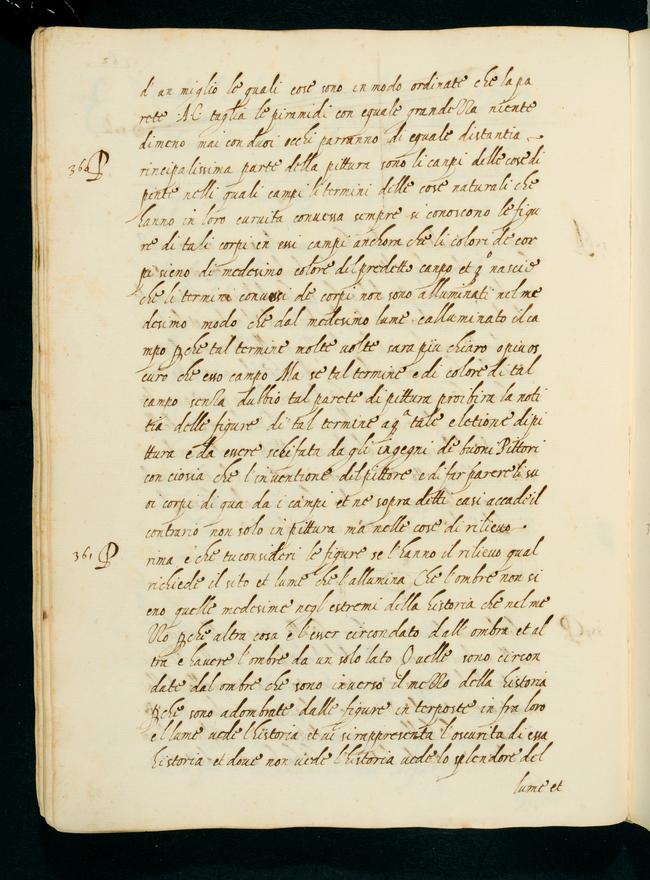 d un miglio le quali cose sono in modo ordinate che la pa
rete AC taglia le piramidi con equale grandezza niente
dimeno mai con duoi occhi parranno di equale distantia
360 P rincipalissima parte della pittura sono li campi delle cose di
pinte nelli quali campi li termini delle cose naturali che
hanno in loro curuita conuessa sempre si conoscono le figu
re di tali corpi in essi campi anchora che li colori de cor
pi sieno di medesimo colore del predetto canpo et qº nascie
che li termini conuessi de corpi non sono alluminati nel me
desimo modo che dal medesimo lume e alluminato il ca
mpo ꝑche tal termine molte uolte sara piu chiaro o piu os
curo che esso campo Ma se tal termine e di colore di tal
campo senza dubbio tal parete di pittura proibira la noti
tia delle figure di tal termine a qª tale eletione di pi
ttura e da essere schifata da gli ingegni de buoni Pittori
conciosia che l'inuentione del pittore e di far parere li su
oi corpi di qua da i campi et ne sopra detti casi accade il
contrario non solo in pittura ma nelle cose di rilieuo
361 P rima è che tu consideri le figure se l'hanno il rilieuo qual
richiede il sito et lume che l'allumina Che l'ombre non si
eno quelle medesime negl estremi della historia che nel me
zzo ꝑche altra cosa è l'esser circondato dall ombra et al
tra e hauere l'ombre da un solo lato Quelle sono circon
date dal ombre che sono inuerso il mezzo della historia
ꝑche sono adombrate dalle figure interposte in fra loro
e l lume uede l'historia et ui si rappresenta l'oscurita di essa
historia et doue non uede l'historia uede lo splendore del
lume et